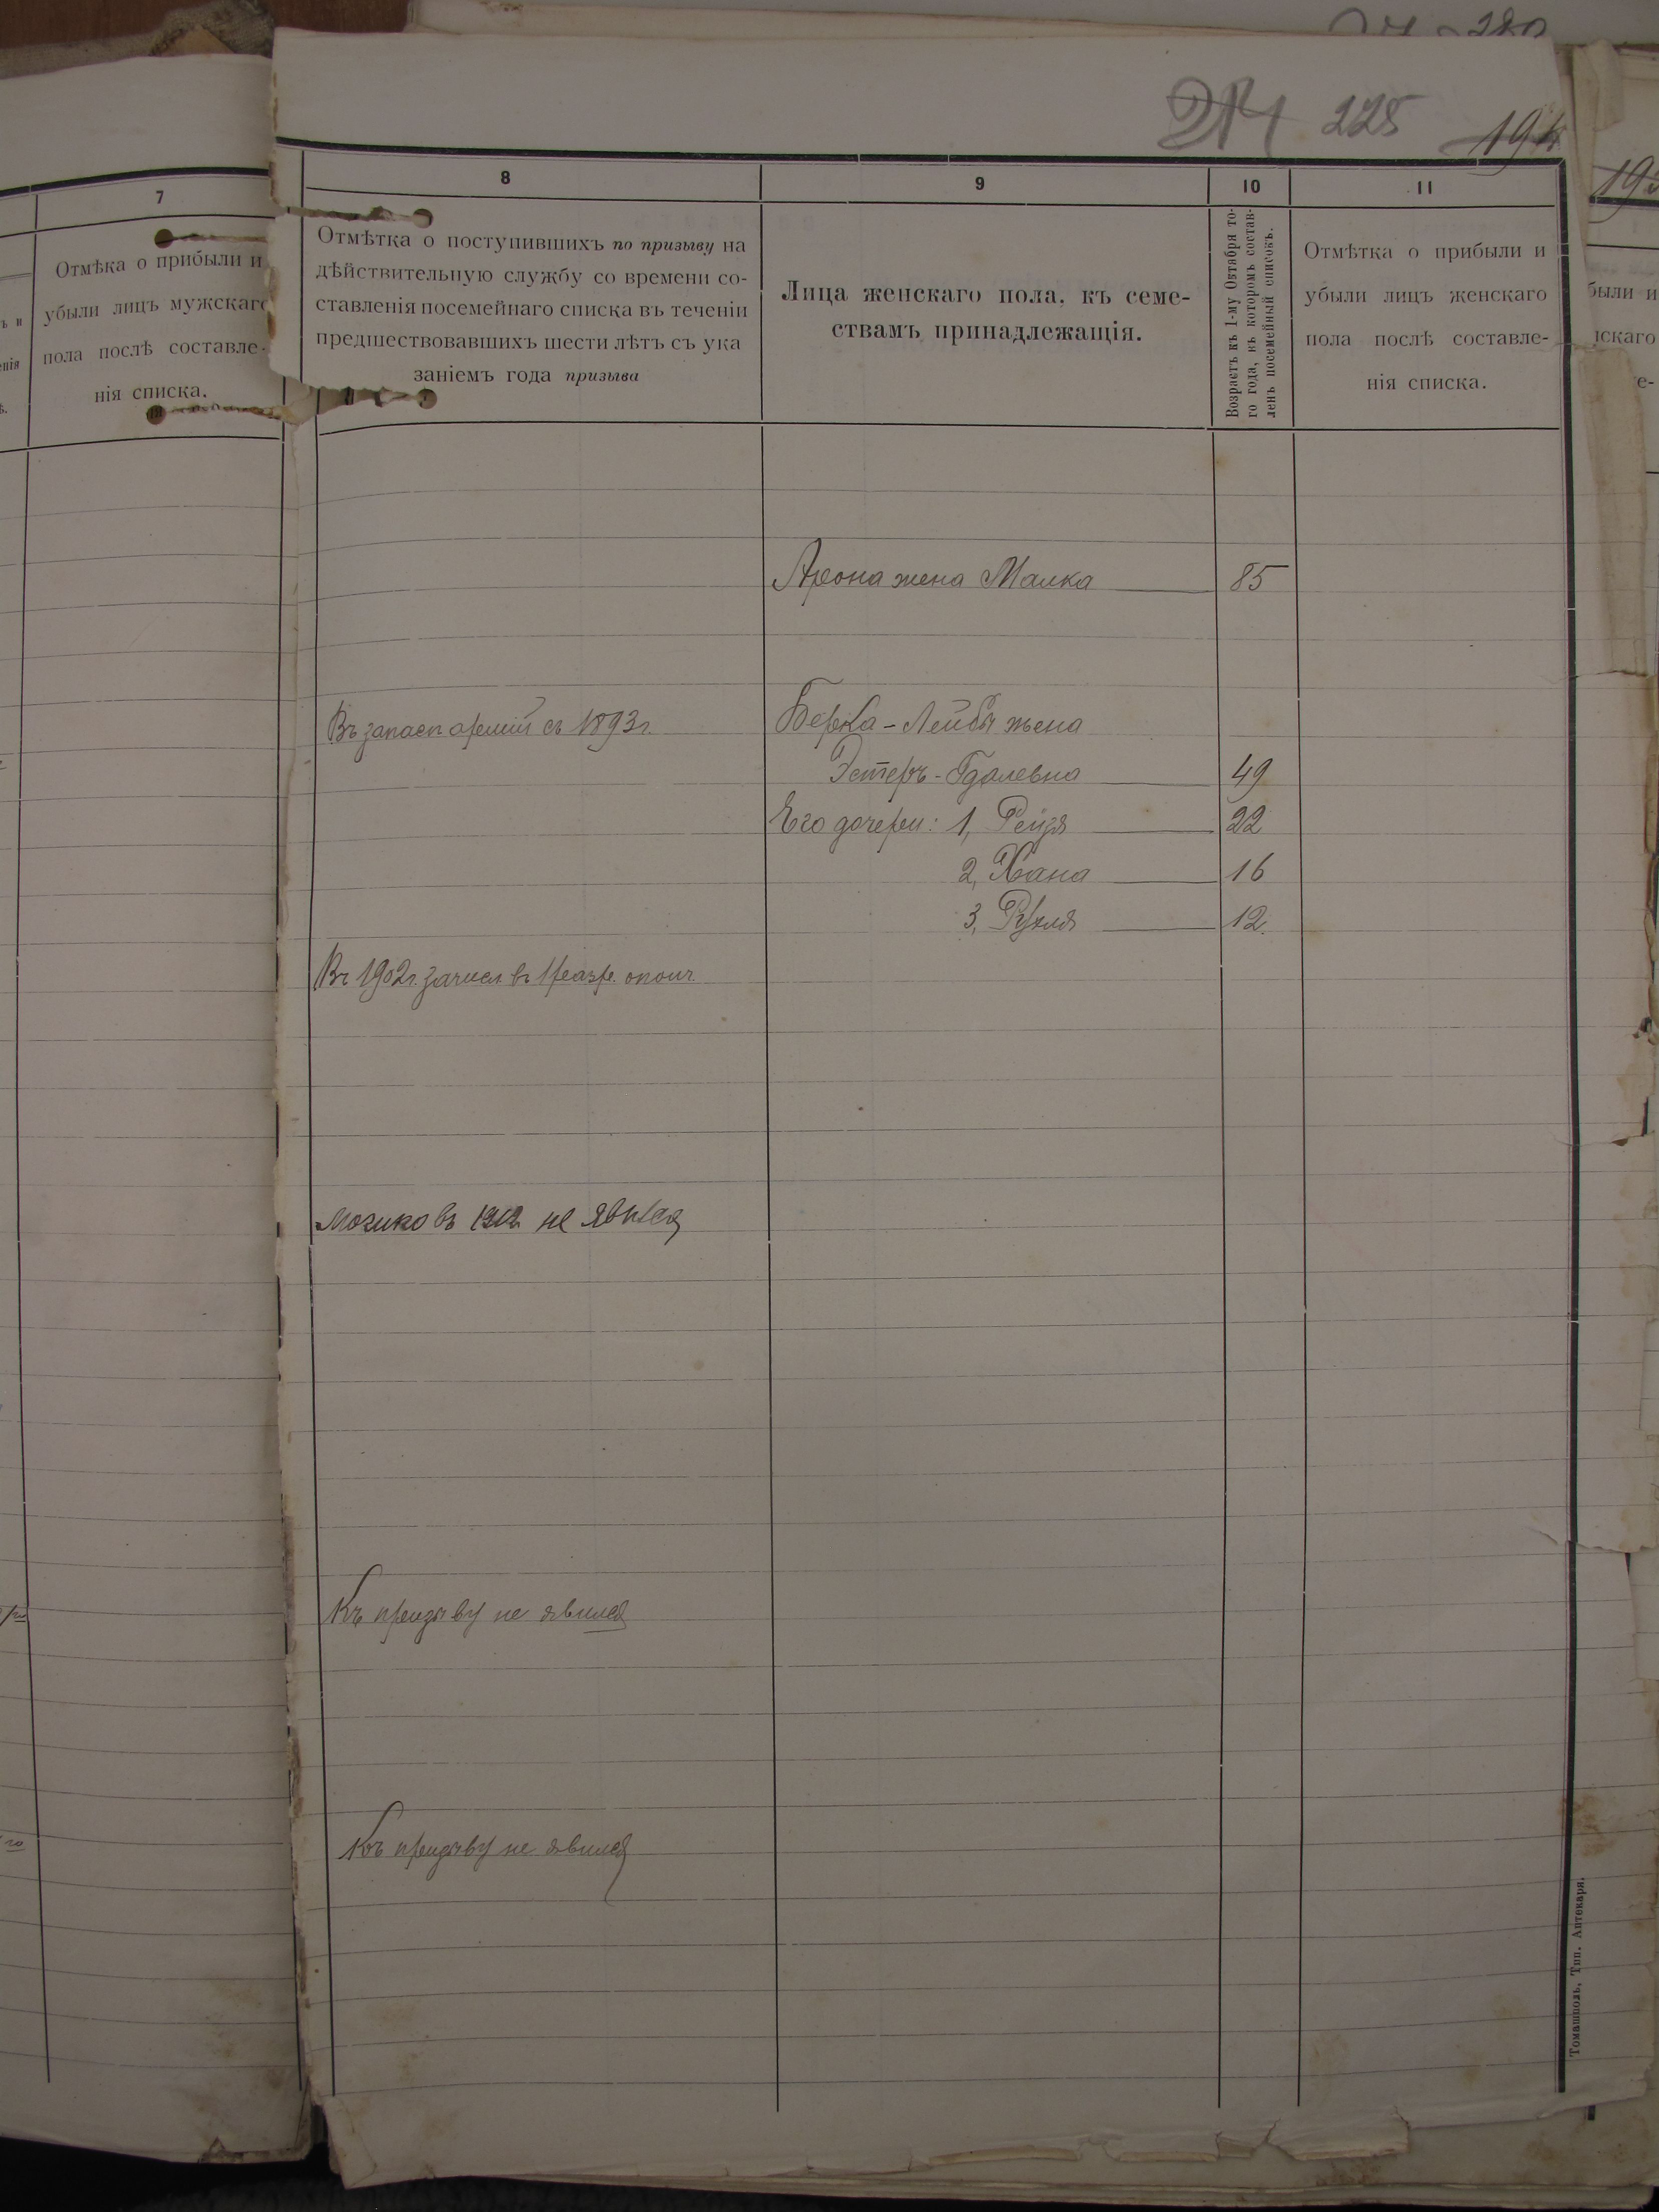 214 225 194
7
Отмѣка о прибыли и
убыли лицъ мужскаго
пола послѣ составле-
нія списка.
8
Отмѣтка о поступившихъ по призыву на
дѣйствительную службу со времени со-
ставленія посемейнаго списка въ теченіи
предшествовавшихъ шести лѣтъ съ ука
заніемъ года призыва
9
Лица женскаго пола, къ семе-
ствамъ принадлежащія.
10
Возрастъ къ 1-му Октября то-
го года, въ которомъ состав-
ленъ посемейный списокъ.
11
Отмѣтка о прибыли и
убыли лицъ женскаго
пола послѣ составле-
нія списка.
Арона жена Малка 85
Въ запасѣ арміи съ 1893 г. Берка-Лейбы жена
Эстеръ-Гдалевна 49
Его дочери: 1, Рейзя 22
2, Хана 16
3, Рухля 12.
Въ 1902 г. зачисл. въ 1 разр. ополч.
въ 1912 не явился
Къ призыву не явился
Къ призыву не явился
Томашполь, Тип. Аптекаря.